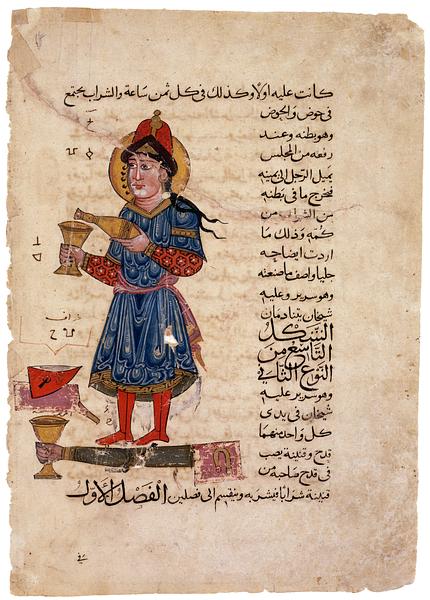 كانت عليه اولًا وكذلك في كل ثمن ساعة والشراب يجتمع
في حوض والحوض
وهو بطنه وعند
رفعه من المجلس
يميل الرجل الى يمينه
فيخرج ما في بطنه
من الشراب من
كمه وذلك ما
اردت ايضاحه
جليا واصف ما صنعته
وهو سرير وعليه
شيخان يتنادمان
الشكل
التاسع من
النوع الثاني
وهو سرير عليه
شيخان في يدي
كل واحد منهما
قدح وقنينة يصب
في قدح صاحبه من
قنينة شرابًا فيشربه وينقسم الى فصلين الفصل الأول
في